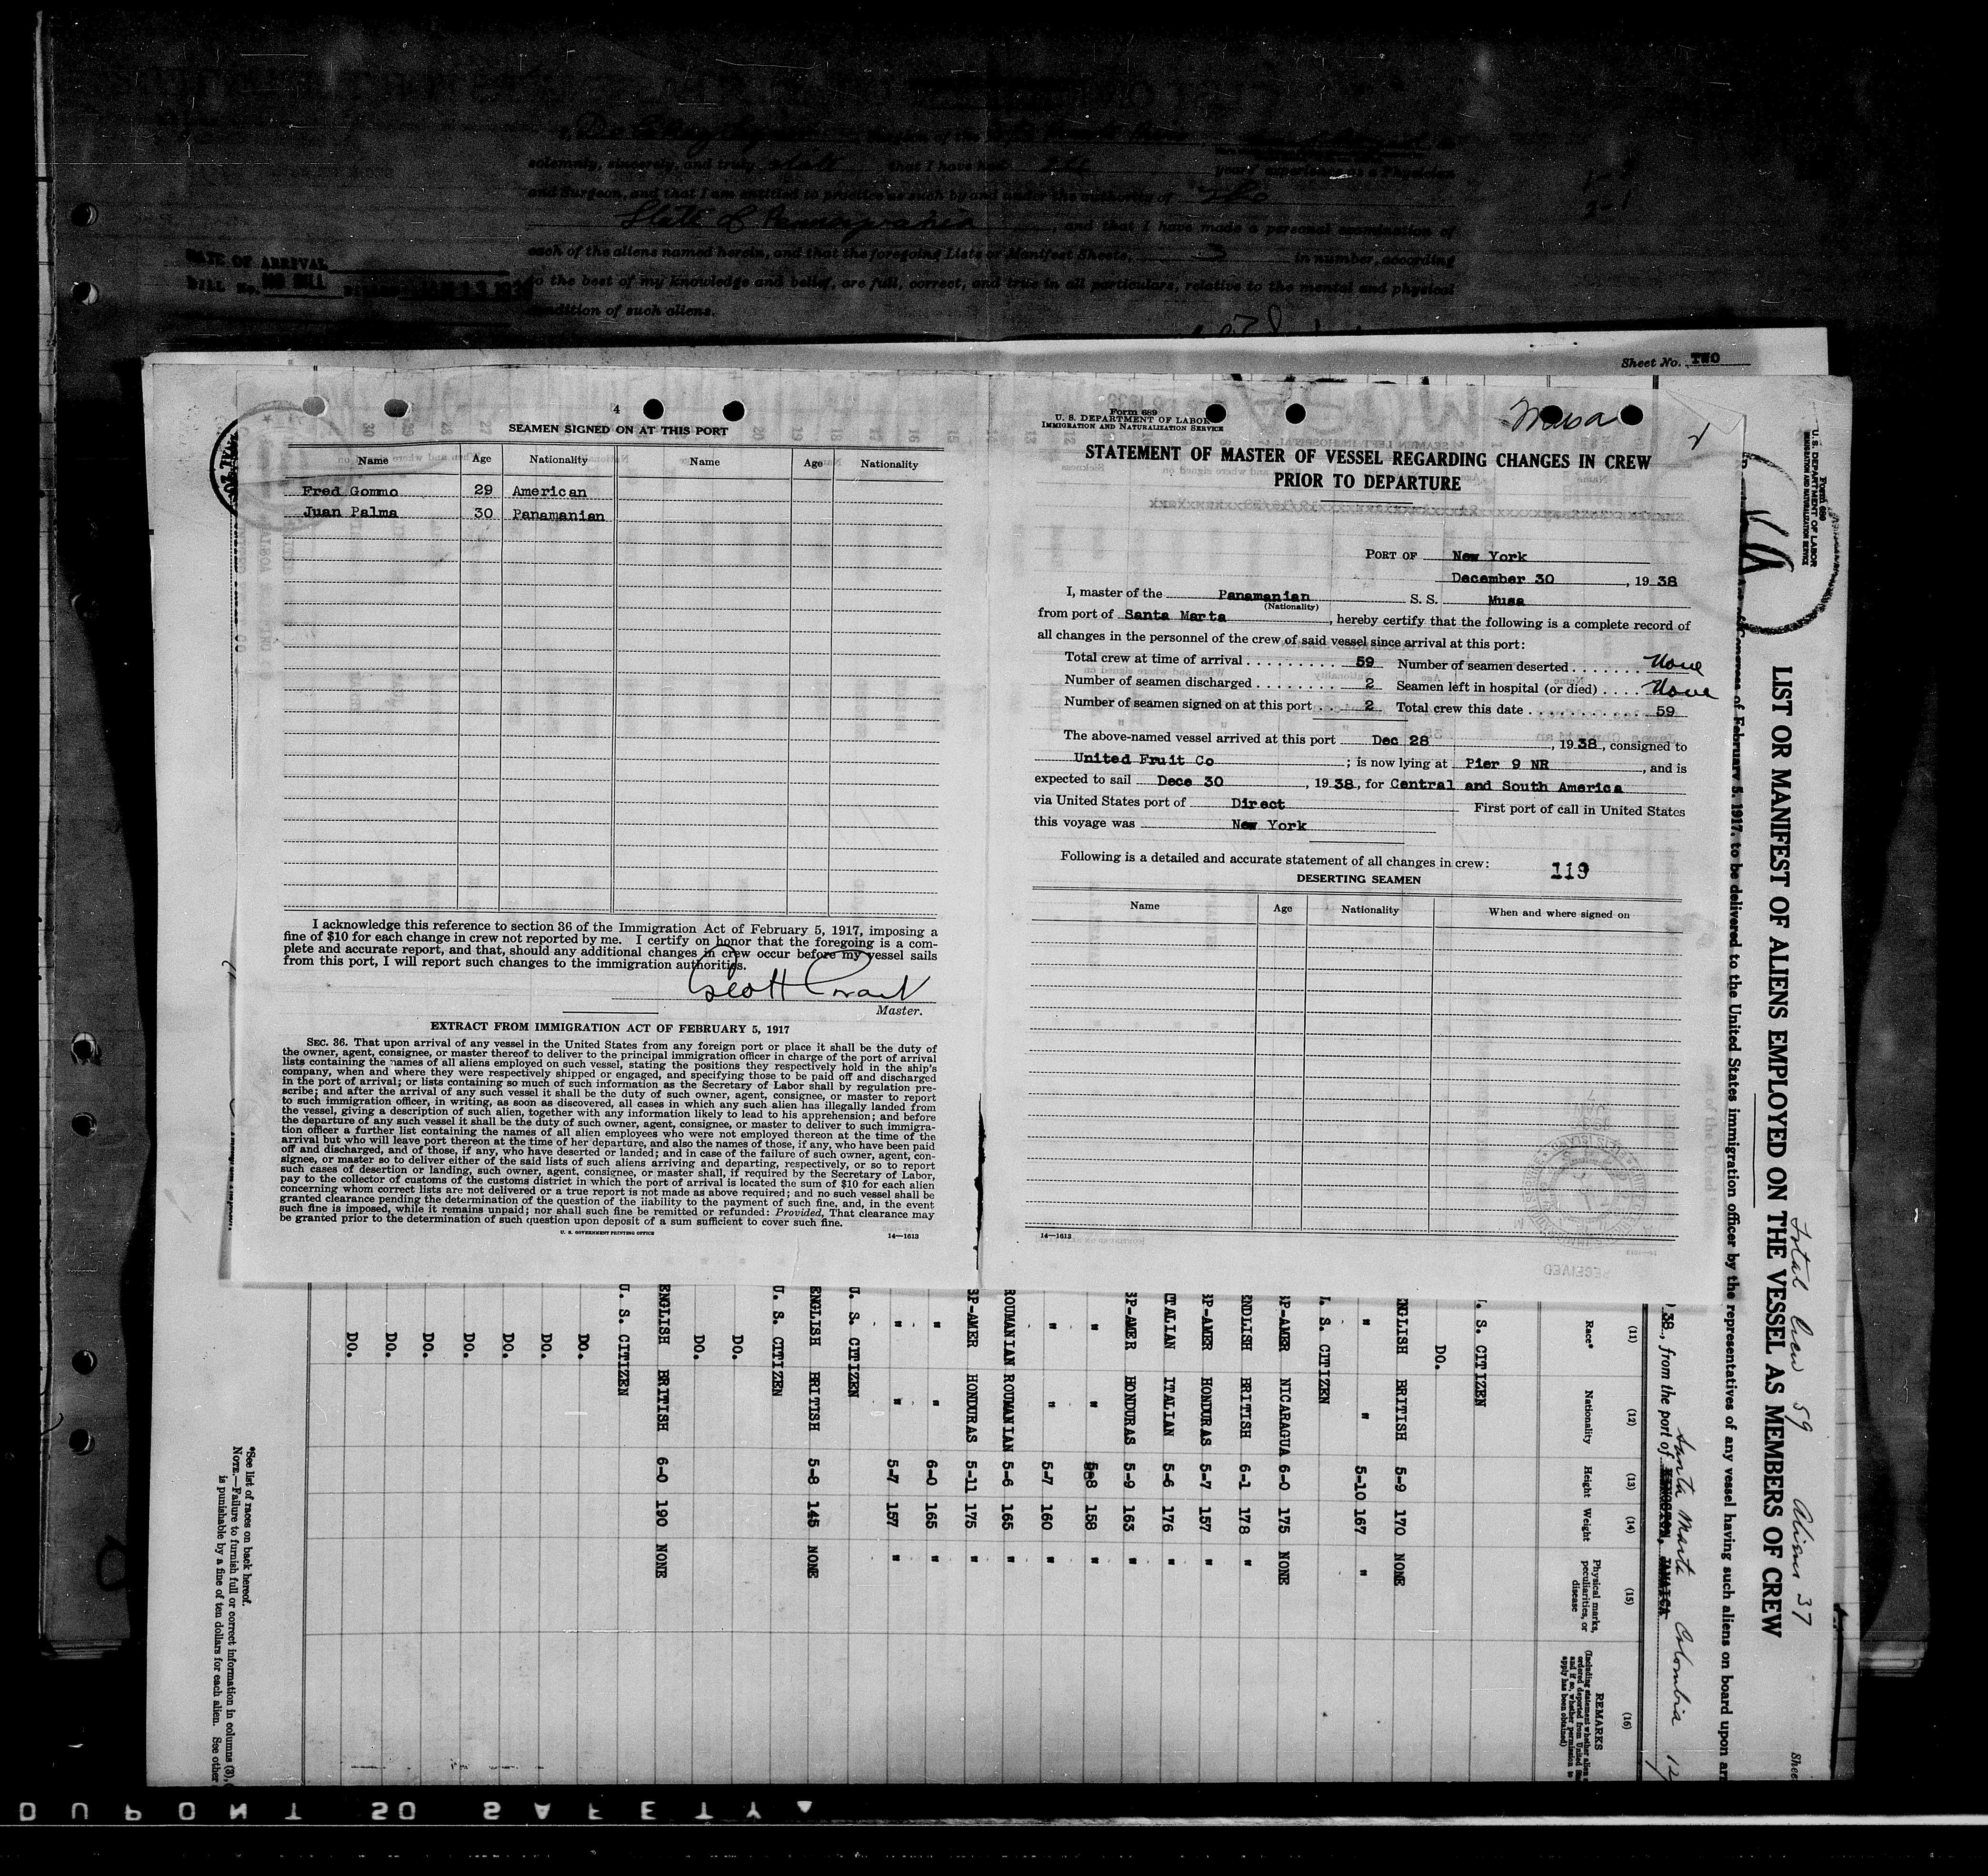 solemnly, sincerely, and truly state that I have had years' experience as a Physician
and Surgeon, and that I am entitled to practice as such by and under the authority of the
State of Pennsylvania, and that I have made a personal examination of
each of the aliens named herein, and that the foregoing Lists or Manifest Sheets, 3 in number, according
to the best of my knowledge and belief, are full, correct, and true in all particulars, relative to the mental and physical
condition of such aliens.
DATE OF ARRIVAL
BILL No. NO BILL
Sheet No. TWO
4
SEAMEN SIGNED ON AT THIS PORT
Name Age Nationality Name Age Nationality
Fred Gommo 29 American
Juan Palma 30 Panamanian
I acknowledge this reference to section 36 of the Immigration Act of February 5, 1917, imposing a
fine of $10 for each change in crew not reported by me. I certify on honor that the foregoing is a com-
plete and accurate report, and that, should any additional changes in crew occur before my vessel sails
from this port, I will report such changes to the immigration authorities.
Master.
EXTRACT FROM IMMIGRATION ACT OF FEBRUARY 5, 1917
SEC. 36. That upon arrival of any vessel in the United States from any foreign port or place it shall be the duty of
the owner, agent, consignee, or master thereof to deliver to the principal immigration officer in charge of the port of arrival
lists containing the names of all aliens employed on such vessel, stating the positions they respectively hold in the ship's
company, when and where they were respectively shipped or engaged, and specifying those to be paid off and discharged
in the port of arrival; or lists containing so much of such information as the Secretary of Labor shall by regulation pre-
scribe; and after the arrival of any such vessel it shall be the duty of such owner, agent, consignee, or master to report
to such immigration officer, in writing, as soon as discovered, all cases in which any such alien has illegally landed from
the vessel, giving a description of such alien, together with any information likely to lead to his apprehension; and before
the departure of any such vessel it shall be the duty of such owner, agent, consignee, or master to deliver to such immigra-
tion officer a further list containing the names of all alien employees who were not employed thereon at the time of the
arrival but who will leave port thereon at the time of her departure, and also the names of those, if any, who have been paid
off and discharged, and of those, if any, who have deserted or landed; and in case of the failure of such owner, agent, con-
signee, or master so to deliver either of the said lists of such aliens arriving and departing, respectively, or so to report
such cases of desertion or landing, such owner, agent, consignee, or master shall, if required by the Secretary of Labor,
pay to the collector of customs of the customs district in which the port of arrival is located the sum of $10 for each alien
concerning whom correct lists are not delivered or a true report is not made as above required; and no such vessel shall be
granted clearance pending the determination of the question of the liability to the payment of such fine, and, in the event
such fine is imposed, while it remains unpaid; nor shall such fine be remitted or refunded: Provided, That clearance may
be granted prior to the determination of such question upon deposit of a sum sufficient to cover such fine.
U. S. GOVERNMENT PRINTING OFFICE 14—1613
Form 689
U. S. DEPARTMENT OF LABOR
IMMIGRATION AND NATURALIZATION SERVICE
Musa
STATEMENT OF MASTER OF VESSEL REGARDING CHANGES IN CREW
PRIOR TO DEPARTURE
PORT OF New York
December 30, 1938
I, master of the Panamanian S. S. Musa
(Nationality)
from port of Santa Marta, hereby certify that the following is a complete record of
all changes in the personnel of the crew of said vessel since arrival at this port:
Total crew at time of arrival 59 Number of seamen deserted None
Number of seamen discharged 2 Seamen left in hospital (or died) None
Number of seamen signed on at this port 2 Total crew this date 59
The above-named vessel arrived at this port Dec 28, 1938, consigned to
United Fruit Co; is now lying at Pier 9 NR, and is
expected to sail Dece 30, 1938, for Central and South America
via United States port of Direct First port of call in United States
this voyage was New York
Following is a detailed and accurate statement of all changes in crew: 119
DESERTING SEAMEN
Name Age Nationality When and where signed on
14—1613
Form 689
U. S. DEPARTMENT OF LABOR
IMMIGRATION AND NATURALIZATION SERVICE
Total Crew 59 Aliens 37
LIST OR MANIFEST OF ALIENS EMPLOYED ON THE VESSEL AS MEMBERS OF CREW
of Congress of February 5, 1917, to be delivered to the United States immigration officer by the representatives of any vessel having such aliens on board upon
38, from the port of KINGSTON, JAMAICA Santa Marta Colombia
(11) (12) (13) (14) (15) (16)
Race* Nationality Height Weight Physical marks, peculiarities, or disease REMARKS
U. S. CITIZEN
DO.
ENGLISH BRITISH 5-9 170 NONE
" " 5-10 167 "
U. S. CITIZEN
SP-AMER NICARAGUA 6-0 175 NONE
ENDLISH BRITISH 6-1 178 "
SP-AMER HONDURAS 5-7 157 "
ITALIAN ITALIAN 5-6 176 "
SP-AMER HONDURAS 5-9 163 "
" " 5-8 158 "
" " 5-7 160 "
ROUMANIAN ROUMANIAN 5-6 165 "
SP-AMER HONDURAS 5-11 175 "
" " 6-0 165 "
" " 5-7 157 "
U. S. CITIZEN
ENGLISH BRITISH 5-8 145 NONE
U. S. CITIZEN
DO.
DO.
ENGLISH BRITISH 6-0 190 NONE
U. S. CITIZEN
DO.
DO.
DO.
DO.
DO.
DO.
DO.
*See list of races on back hereof.
NOTE.—Failure to furnish full or correct information in columns (3),
is punishable by a fine of ten dollars for each alien. See other
DUPONT 50 SAFETY